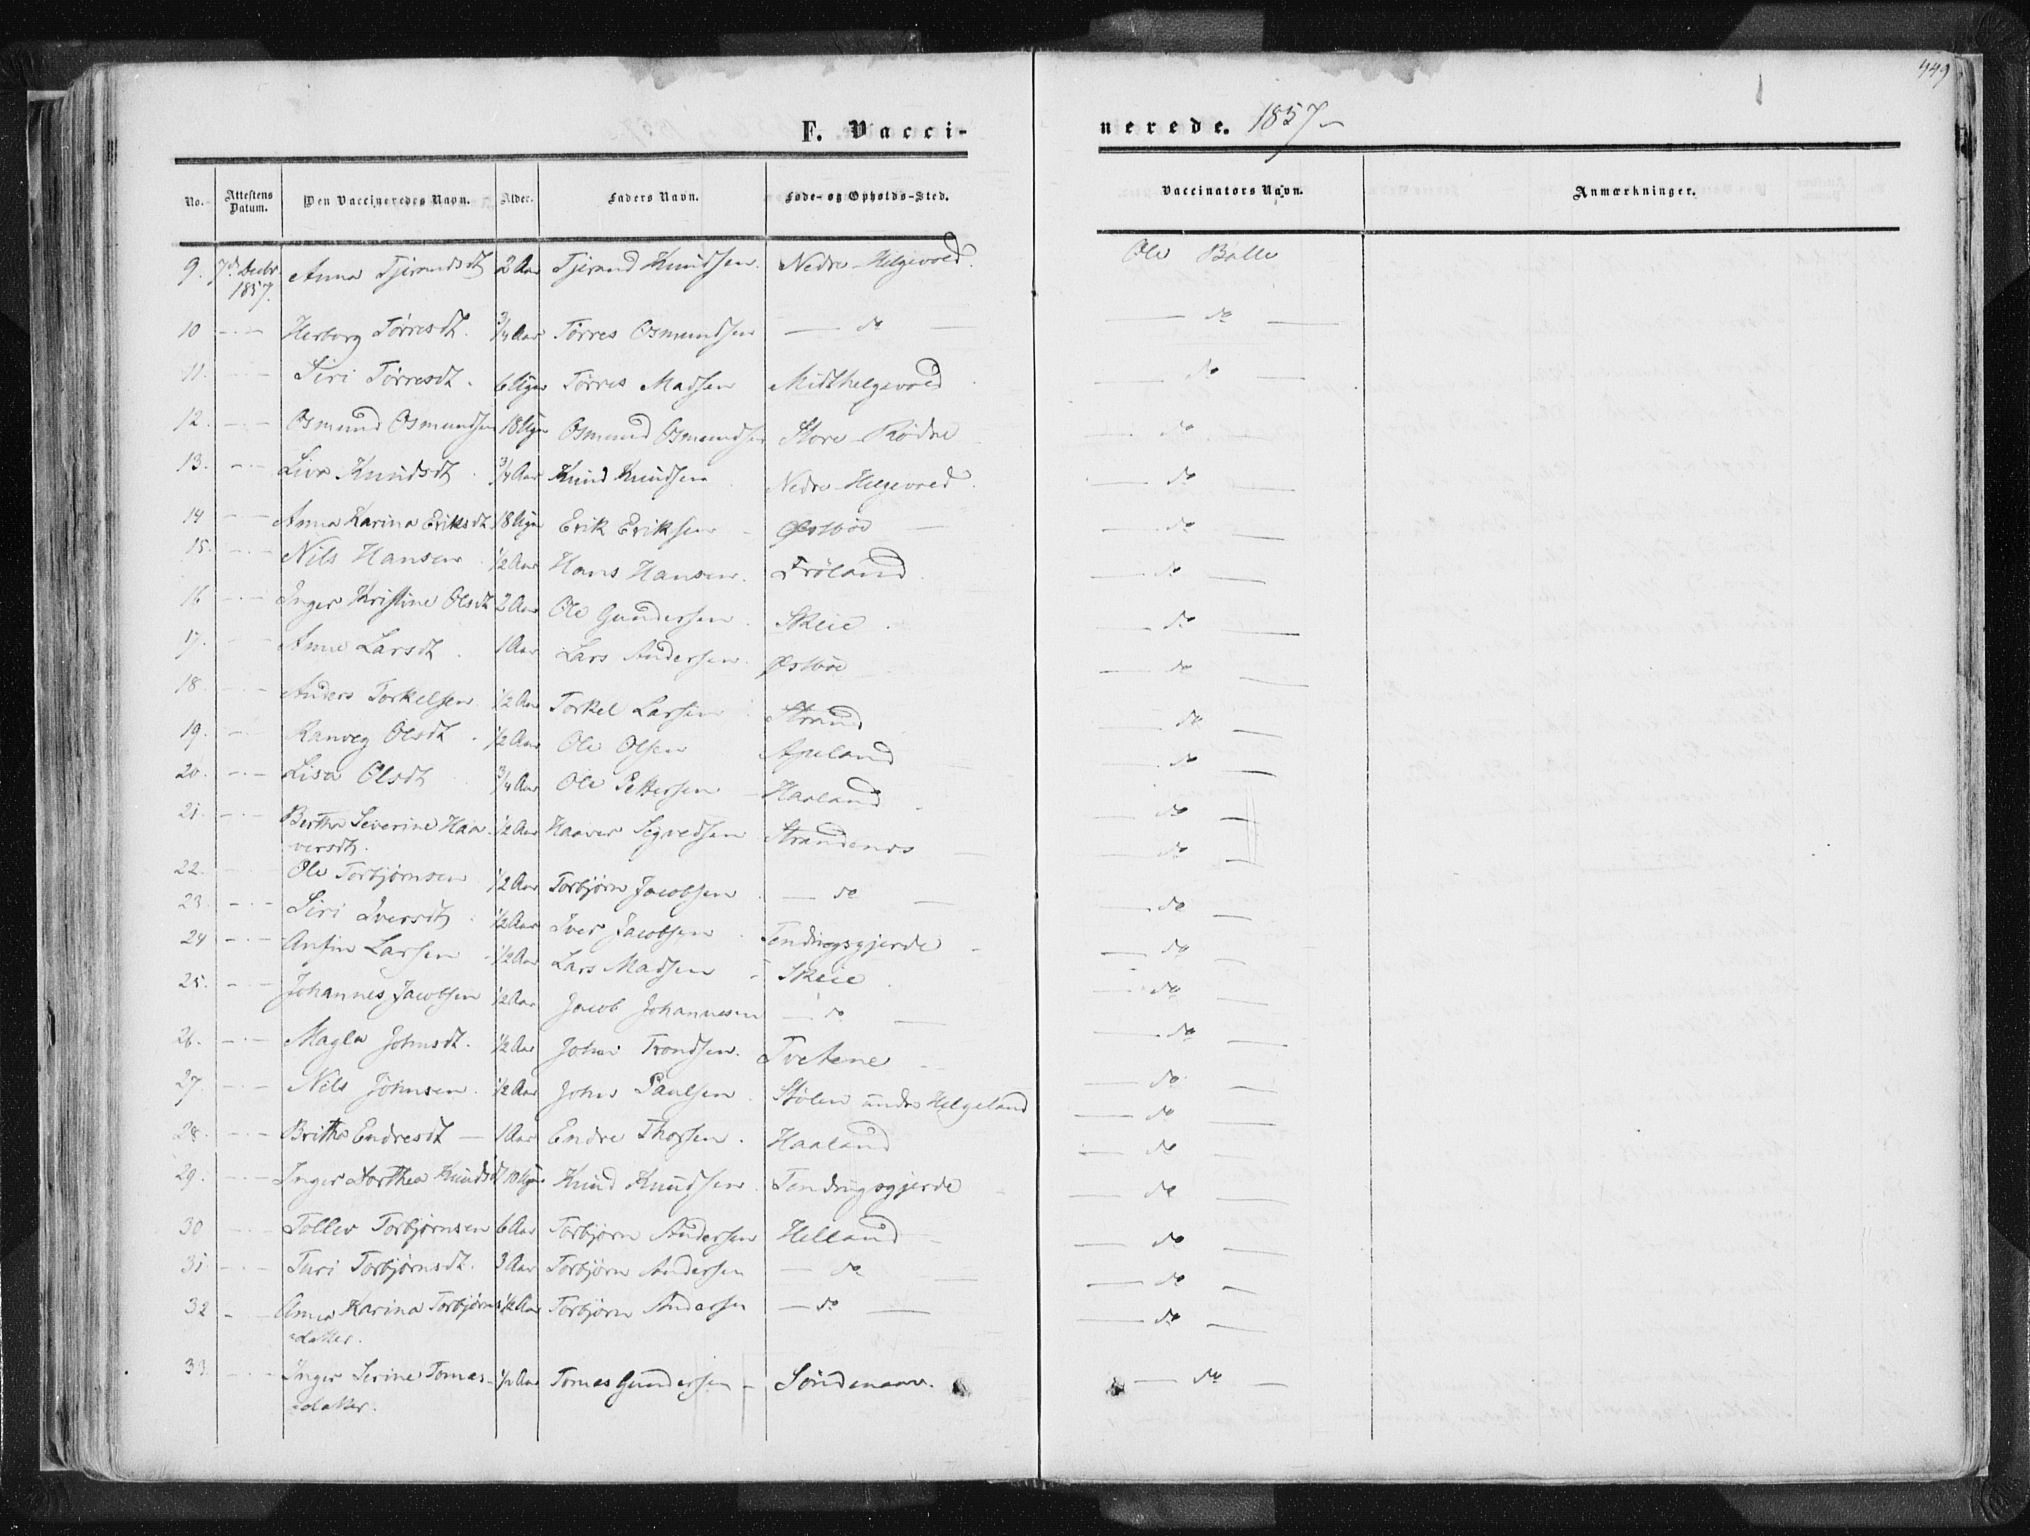 449
F. Vacci-
nerede. 1857
No. Attestens Datum. Den Vaccineredes Navn. Alder. Faders Navn. Føde- og Opholds-Sted. Vaccinators Navn. Anmærkninger.
9. 7d Decbr 1857. Anna Tjerandsdt 2 Aar Tjerand Knudsen. Nedre Helgevold. Ole Bølle
10 - - - Herborg Tørresdt. 3/4 Aar Tørres Osmundsen — do — — do —
11. - - - Siri Tørresdt. 6 Uger Tørres Madsen Midthelgevold — do —
12. - - - Osmund Osmundsen 18 Uger Osmund Osmundsen Store Rødne — do —
13. - - - Liva Knudsdt 3/4 Aar Knud Knudsen Nedre Helgevold. — do —
14 - - - Anna Karina Eriksdt 18 Uger Erik Eriksen - Østbøe — do —
15. - - - Nils Hansen 1/2 Aar Hans Hansen. Frøland — do —
16 - - - Inger Kristine Olsdt 2 Aar Ole Gundersen Skeie. — do —
17. - - Anne Larsdt. 1 Aar Lars Andersen. Østbøe — do —
18. - - - Anders Torkelsen. 1/2 Aar Torkel Larsen Strand — do —
19. - - Ranveg Olsdt. 1/2 Aar Ole Olsen Apeland — do —
20. - - - Lisa Olsdt 3/4 Aar Ole Pettersen Haaland — do —
21. - - - Bertha Severine Haa- 1/2 Aar Haaver Segvedsen Strandenes — do —
versdt.
22. - - Ole Torbjørnsen 1/2 Aar Torbjørn Jacobsen — do — — do —
23. - - - Siri Iversdt. 1/2 Aar Iver Jacobsen Tendingsgjerde — do —
24 - - - Anfin Larsen 1/2 Aar Lars Madsen - Skeie — do —
25. - - Johannes Jacobsen 1/2 Aar Jacob Johannesen — do — — do —
26. - - - Magla Johnsdt. 1/2 Aar John Trondsen. Tvetene — do —
27. - - - Nils Johnsen. 1/2 Aar John Paulsen Stølen under Helgeland — do —
28. - - - Britha Endresdt — 1 Aar Endre Thorsen. Haaland — do —
29. - - - Inger Dorthea Knudsdt 10 Uger Knud Knudsen Tendingsgjerde — do —
30 - - - Tollev Torbjørnsen 6 Aar Torbjørn Andersen Helland — do —
31 - - - Turi Torbjørnsdt. 3 Aar Torbjørn Andersen — do — — do —
32 - Anna Karina Torbjørns 1/2 Aar Torbjørn Andersen — do — — do —
datter.
33 - - - Inger Serine Tomas- 1/2 Aar Tomas Gundersen - Søndenaae. — do —
datter.